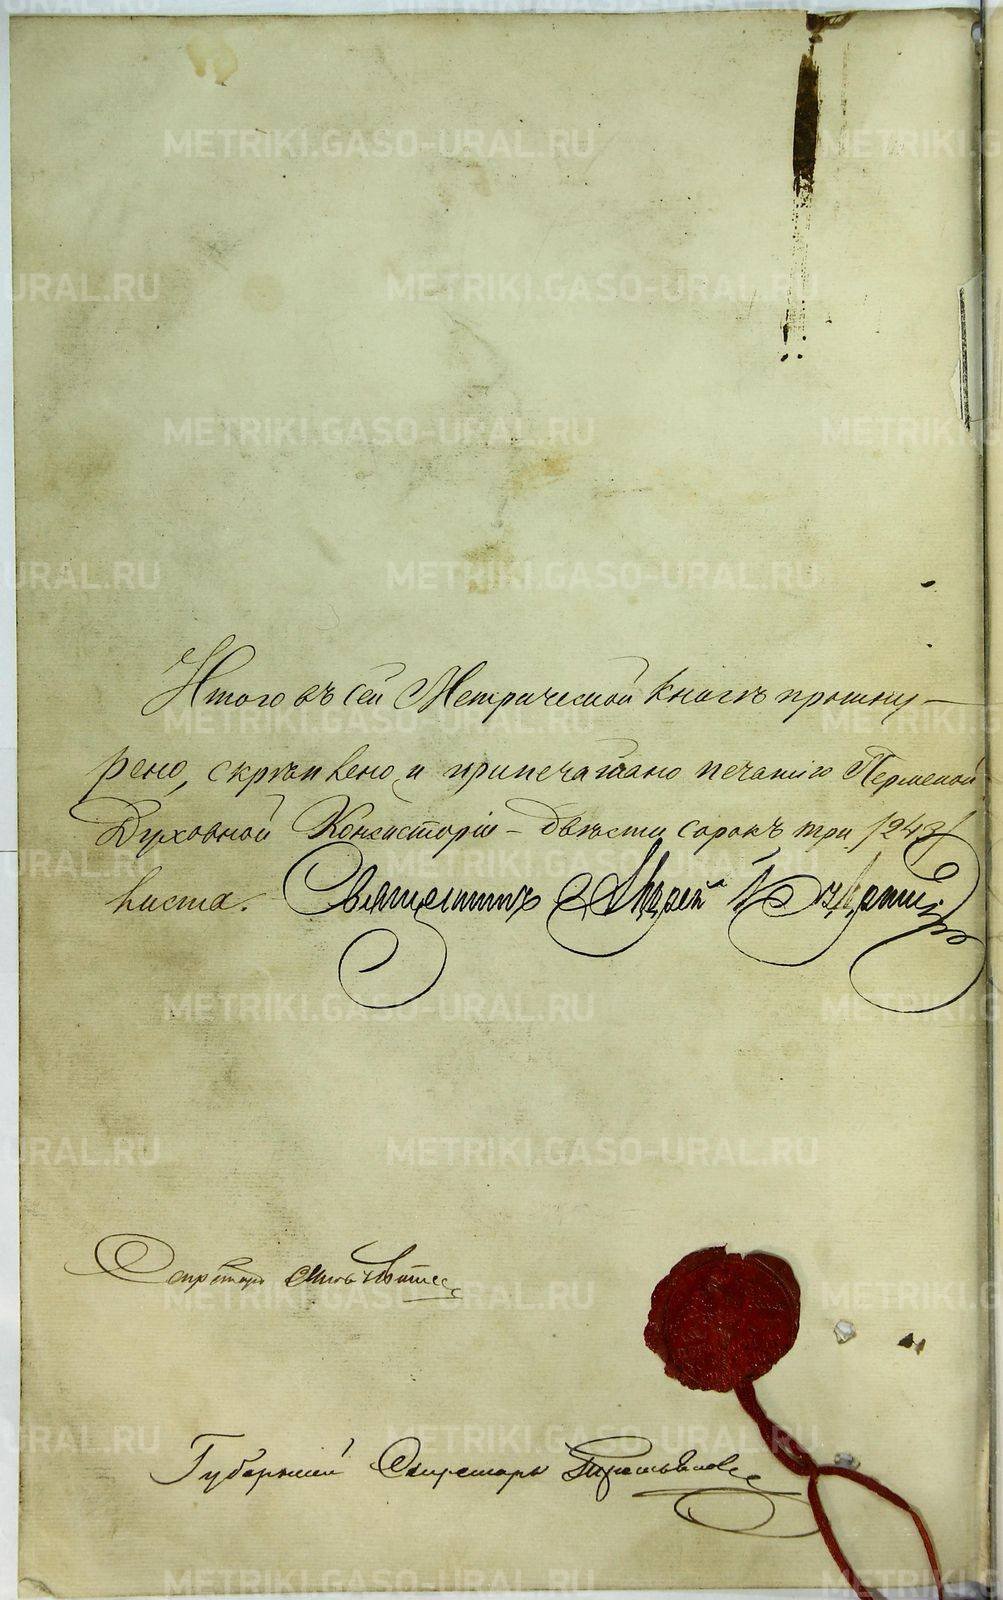 Итого въ сей Метрической книгѣ прошну-
рено, скрѣплено и припечатано печатію Пермской
Духовной Консисторіи - двѣсти сорокъ три /243/
листа. Священникъ Андрей
Секретарь
Губернскій Секретарь
METRIKI.GASO-URAL.RU